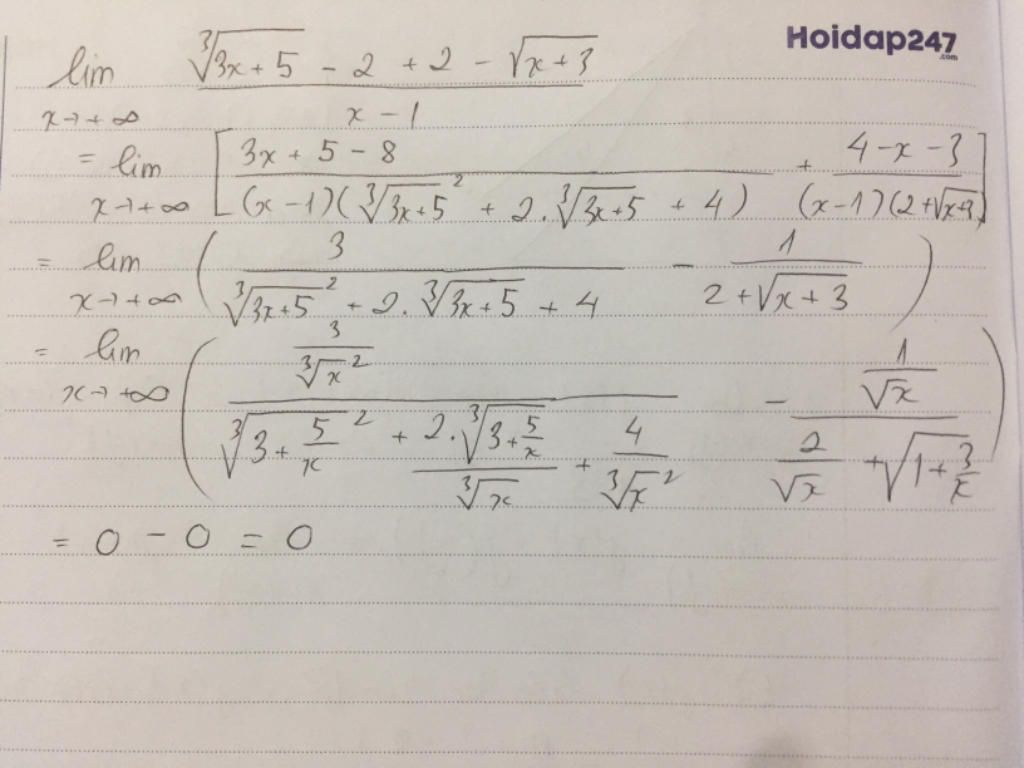 Hoidap247
.com
lim_{x→+∞} (∛(3x+5) - 2 + 2 - √(x+3)) / (x - 1)
= lim_{x→+∞} [ (3x + 5 - 8) / ((x-1)(∛(3x+5)² + 2.∛(3x+5) + 4)) + (4 - x - 3) / ((x-1)(2+√(x+3)) ]
= lim_{x→+∞} ( 3 / (∛(3x+5)² + 2.∛(3x+5) + 4) - 1 / (2+√(x+3)) )
= lim_{x→+∞} ( (3/∛x²) / (∛(3+5/x)² + (2.∛(3+5/x))/∛x + 4/∛x²) - (1/√x) / (2/√x + √(1+3/x)) )
= 0 - 0 = 0